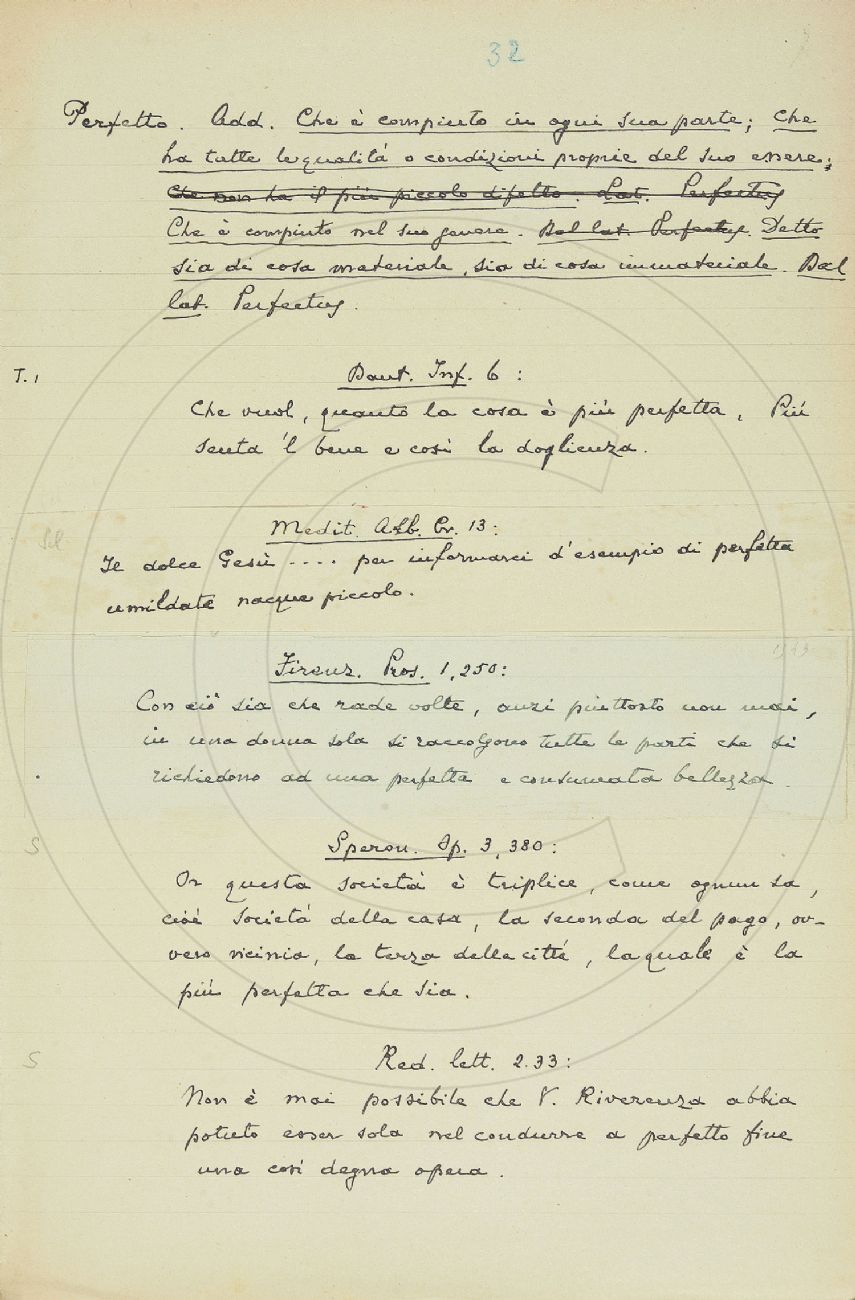 32
Perfetto. Add. Che è compiuto in ogni sua parte; che
ha tutte le qualità o condizioni proprie del suo essere;
Che non ha il più piccolo difetto. Lat. Perfectus
Che è compiuto nel suo genere. Dal lat. Perfectus. Detto
sia di cosa materiale, sia di cosa immateriale. Dal
lat. Perfectus.
T. 1
Dant. Inf. 6:
Che vuol, quanto la cosa è più perfetta, Più
senta 'l bene e così la doglienza.
Medit. Alb. Cr. 13:
Il dolce Gesù .... per informarci d'esempio di perfetta
umildate nacque piccolo.
Firenz. Pros. 1, 250:
Con ciò sia che rade volte, anzi piuttosto non mai,
in una donna sola si raccolgono tutte le parti che si
richiedono ad una perfetta e consumata bellezza.
S
Speron. Op. 3, 380:
Or questa società è triplice, come ognun sa,
cioè società della casa, la seconda del pago, ov-
vero vicinia, la terza della città, la quale è la
più perfetta che sia.
S
Red. lett. 2.33:
Non è mai possibile che V. Riverenza abbia
potuto esser sola nel condurre a perfetto fine
una così degna opera.